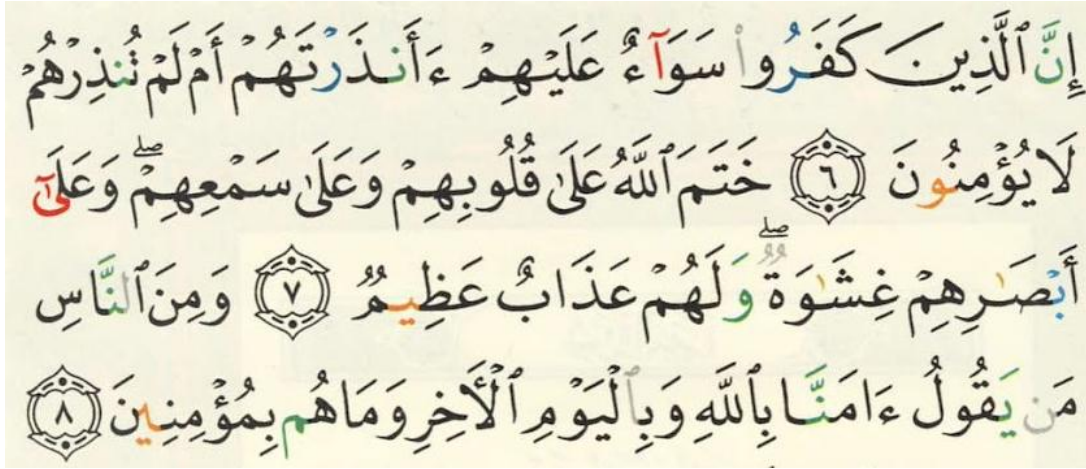 إِنَّ ٱلَّذِينَ كَفَرُوا۟ سَوَآءٌ عَلَيْهِمْ ءَأَنذَرْتَهُمْ أَمْ لَمْ تُنذِرْهُمْ
لَا يُؤْمِنُونَ ٦ خَتَمَ ٱللَّهُ عَلَىٰ قُلُوبِهِمْ وَعَلَىٰ سَمْعِهِمْ ۖ وَعَلَىٰٓ
أَبْصَـٰرِهِمْ غِشَـٰوَةٌ ۖ وَلَهُمْ عَذَابٌ عَظِيمٌ ٧ وَمِنَ ٱلنَّاسِ
مَن يَقُولُ ءَامَنَّا بِٱللَّهِ وَبِٱلْيَوْمِ ٱلْأَخِرِ وَمَا هُم بِمُؤْمِنِينَ ٨